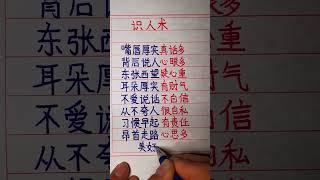 识人术
嘴唇厚实真话多
背后说人心眼多
东张西望疑心重
耳朵厚实有财气
不爱说话不自信
从不夸人很自私
习惯早起有责任
昂首走路心思多
美好